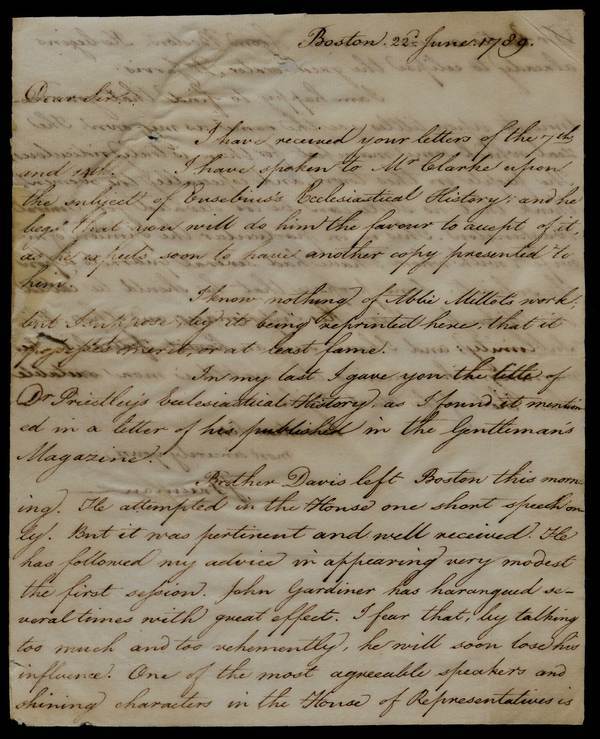 Boston. 22d. June. 1789.
Dear Sir,
I have received your letters of the 7th.
and I have spoken to Mr Clarke upon
the subject of Eusebius's Ecclesiastical History; and he
begs that you will do him the favour to accept of it,
as he expects soon to have another copy presented to
him.
I know nothing of Abbe Millot's work;
but I suppose, by its being reprinted here, that it
possesses merit, or at least fame.
In my last I gave you the title of
Dr Priestley's Ecclesiastical History, as I found it mention
ed in a letter of his published in the Gentleman's
Magazine.
Brother Davis left Boston this morn
ing. He attempted in the House one short speech on
ly. But it was pertinent and well received. He
has followed my advice in appearing very modest
the first session. John Gardiner has harangued se
veral times with great effect. I fear that, by talking
too much and too vehemently, he will soon lose his
influence. One of the most agreeable speakers and
shining characters in the House of Representatives is